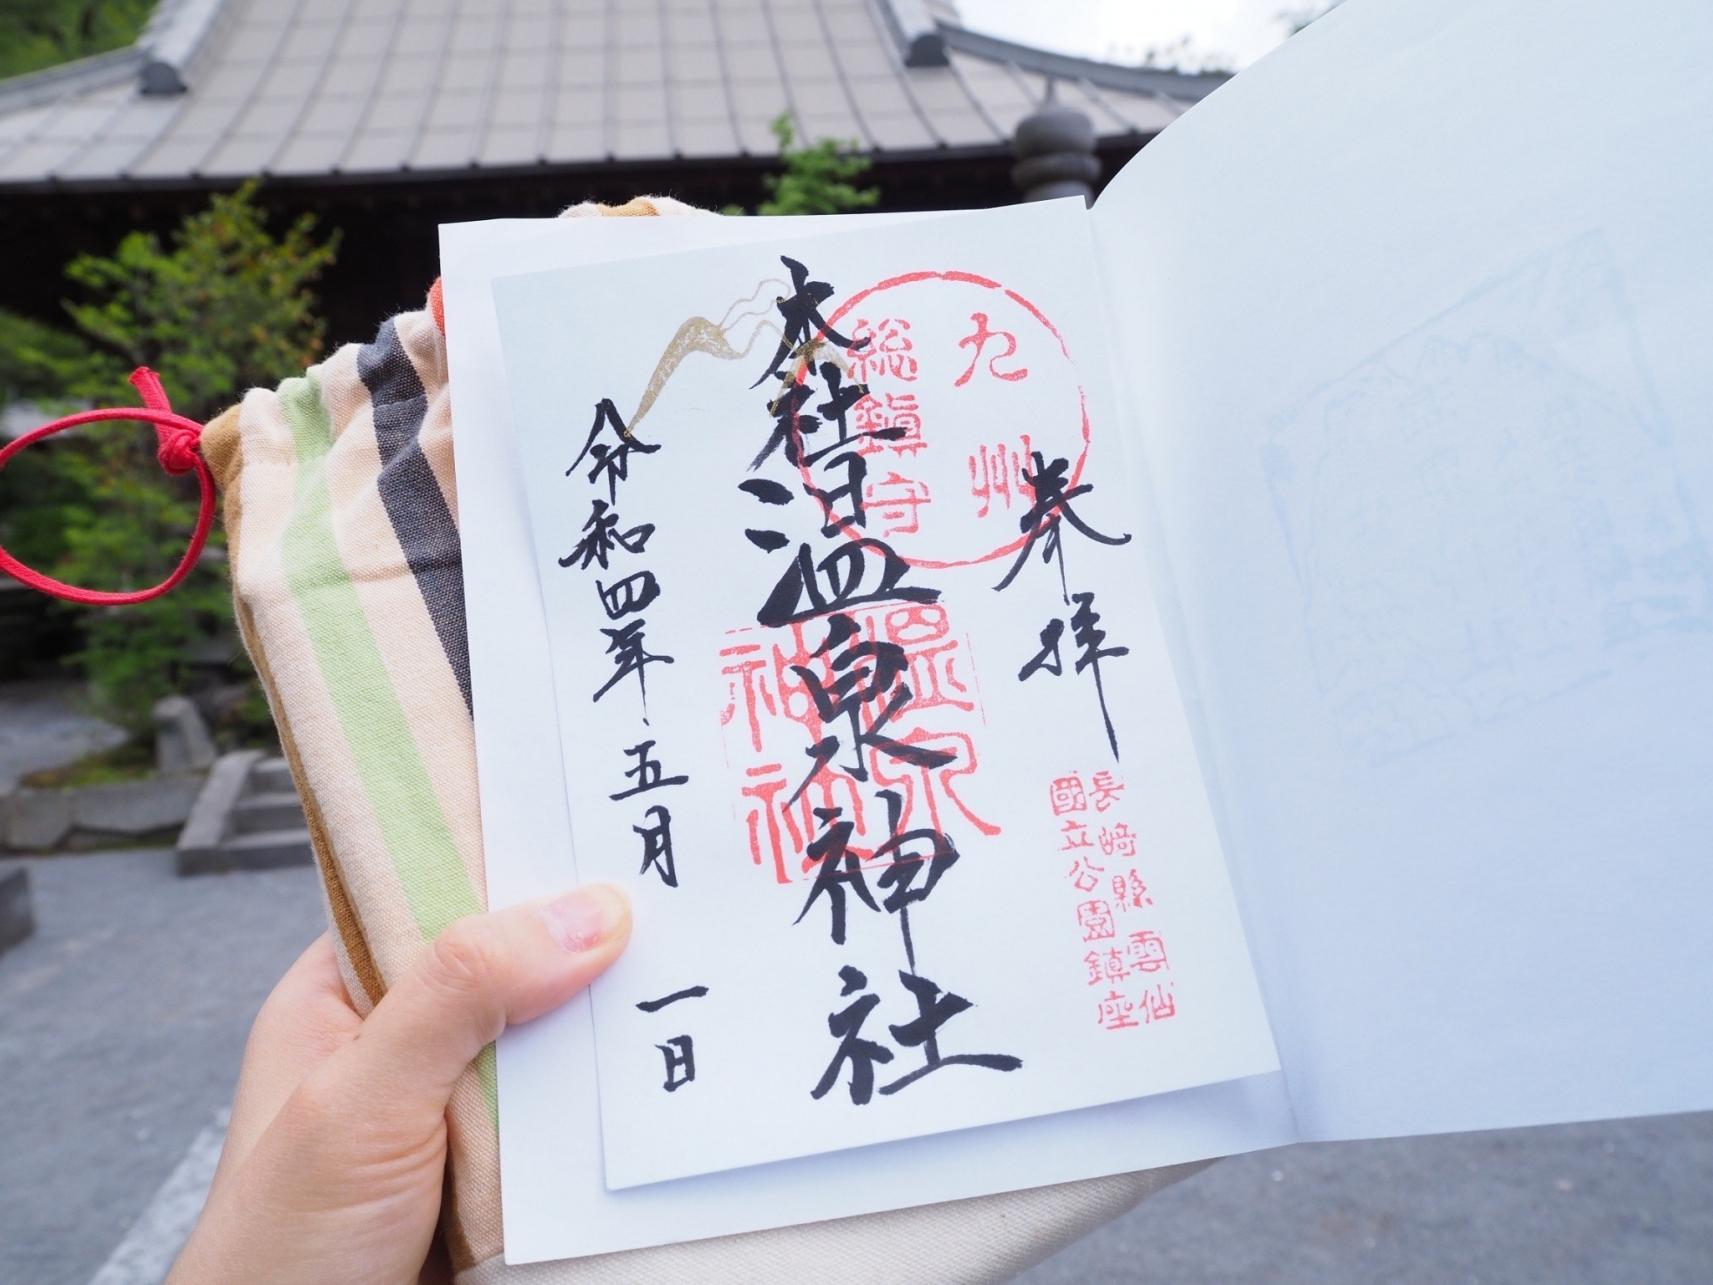 奉拝
九州
総鎮守
長崎縣雲仙
國立公園鎮座
本社温泉神社
温泉
神社
令和四年五月一日